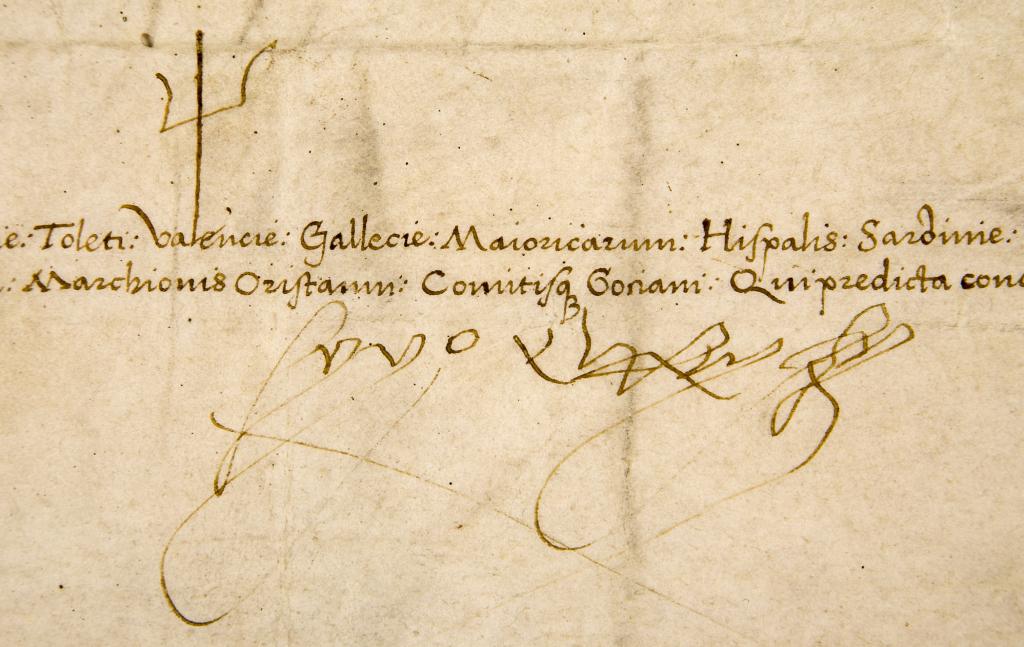 ie: Toleti: Valencie: Gallecie: Maioricarum: Hispalis: Sardinie:
Marchionis Oristanni: Comitisq Gociani: Qui predicta conc